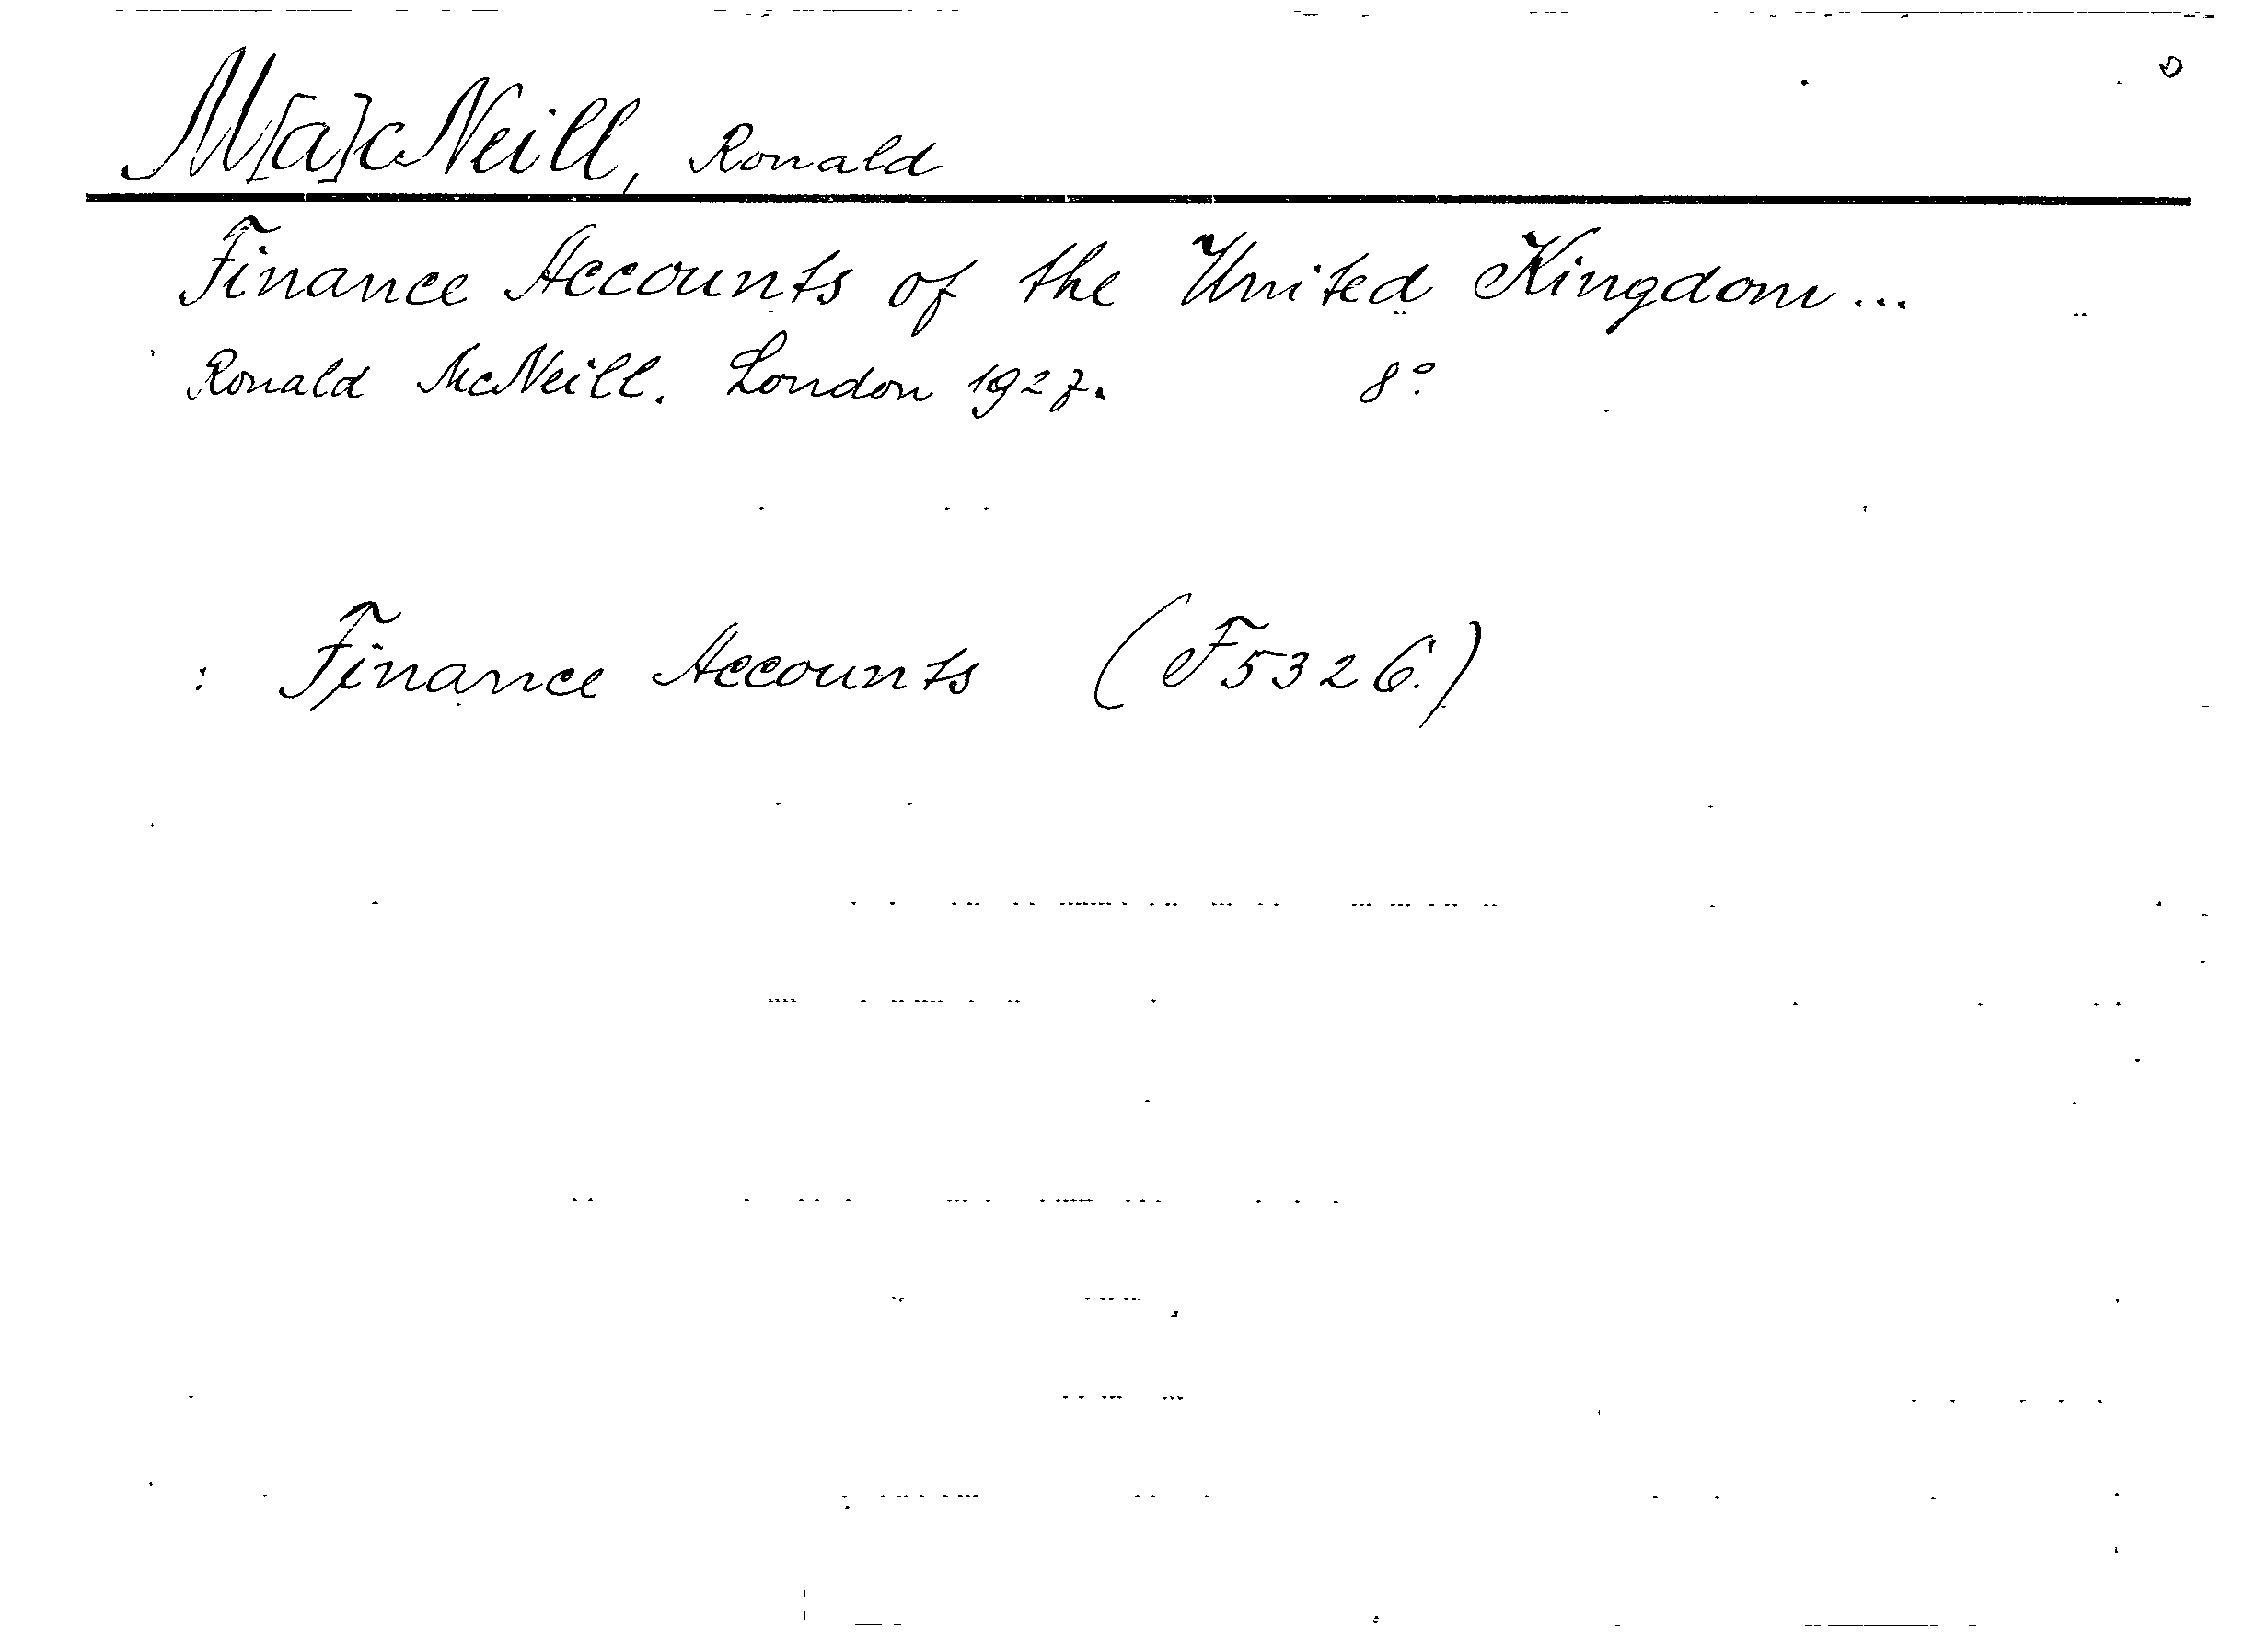 M[a]cNeill, Ronald
Finance Accounts of the United Kingdom...
Ronald McNeill. London 1927. 8°.
: Finance Accounts (F5326.)